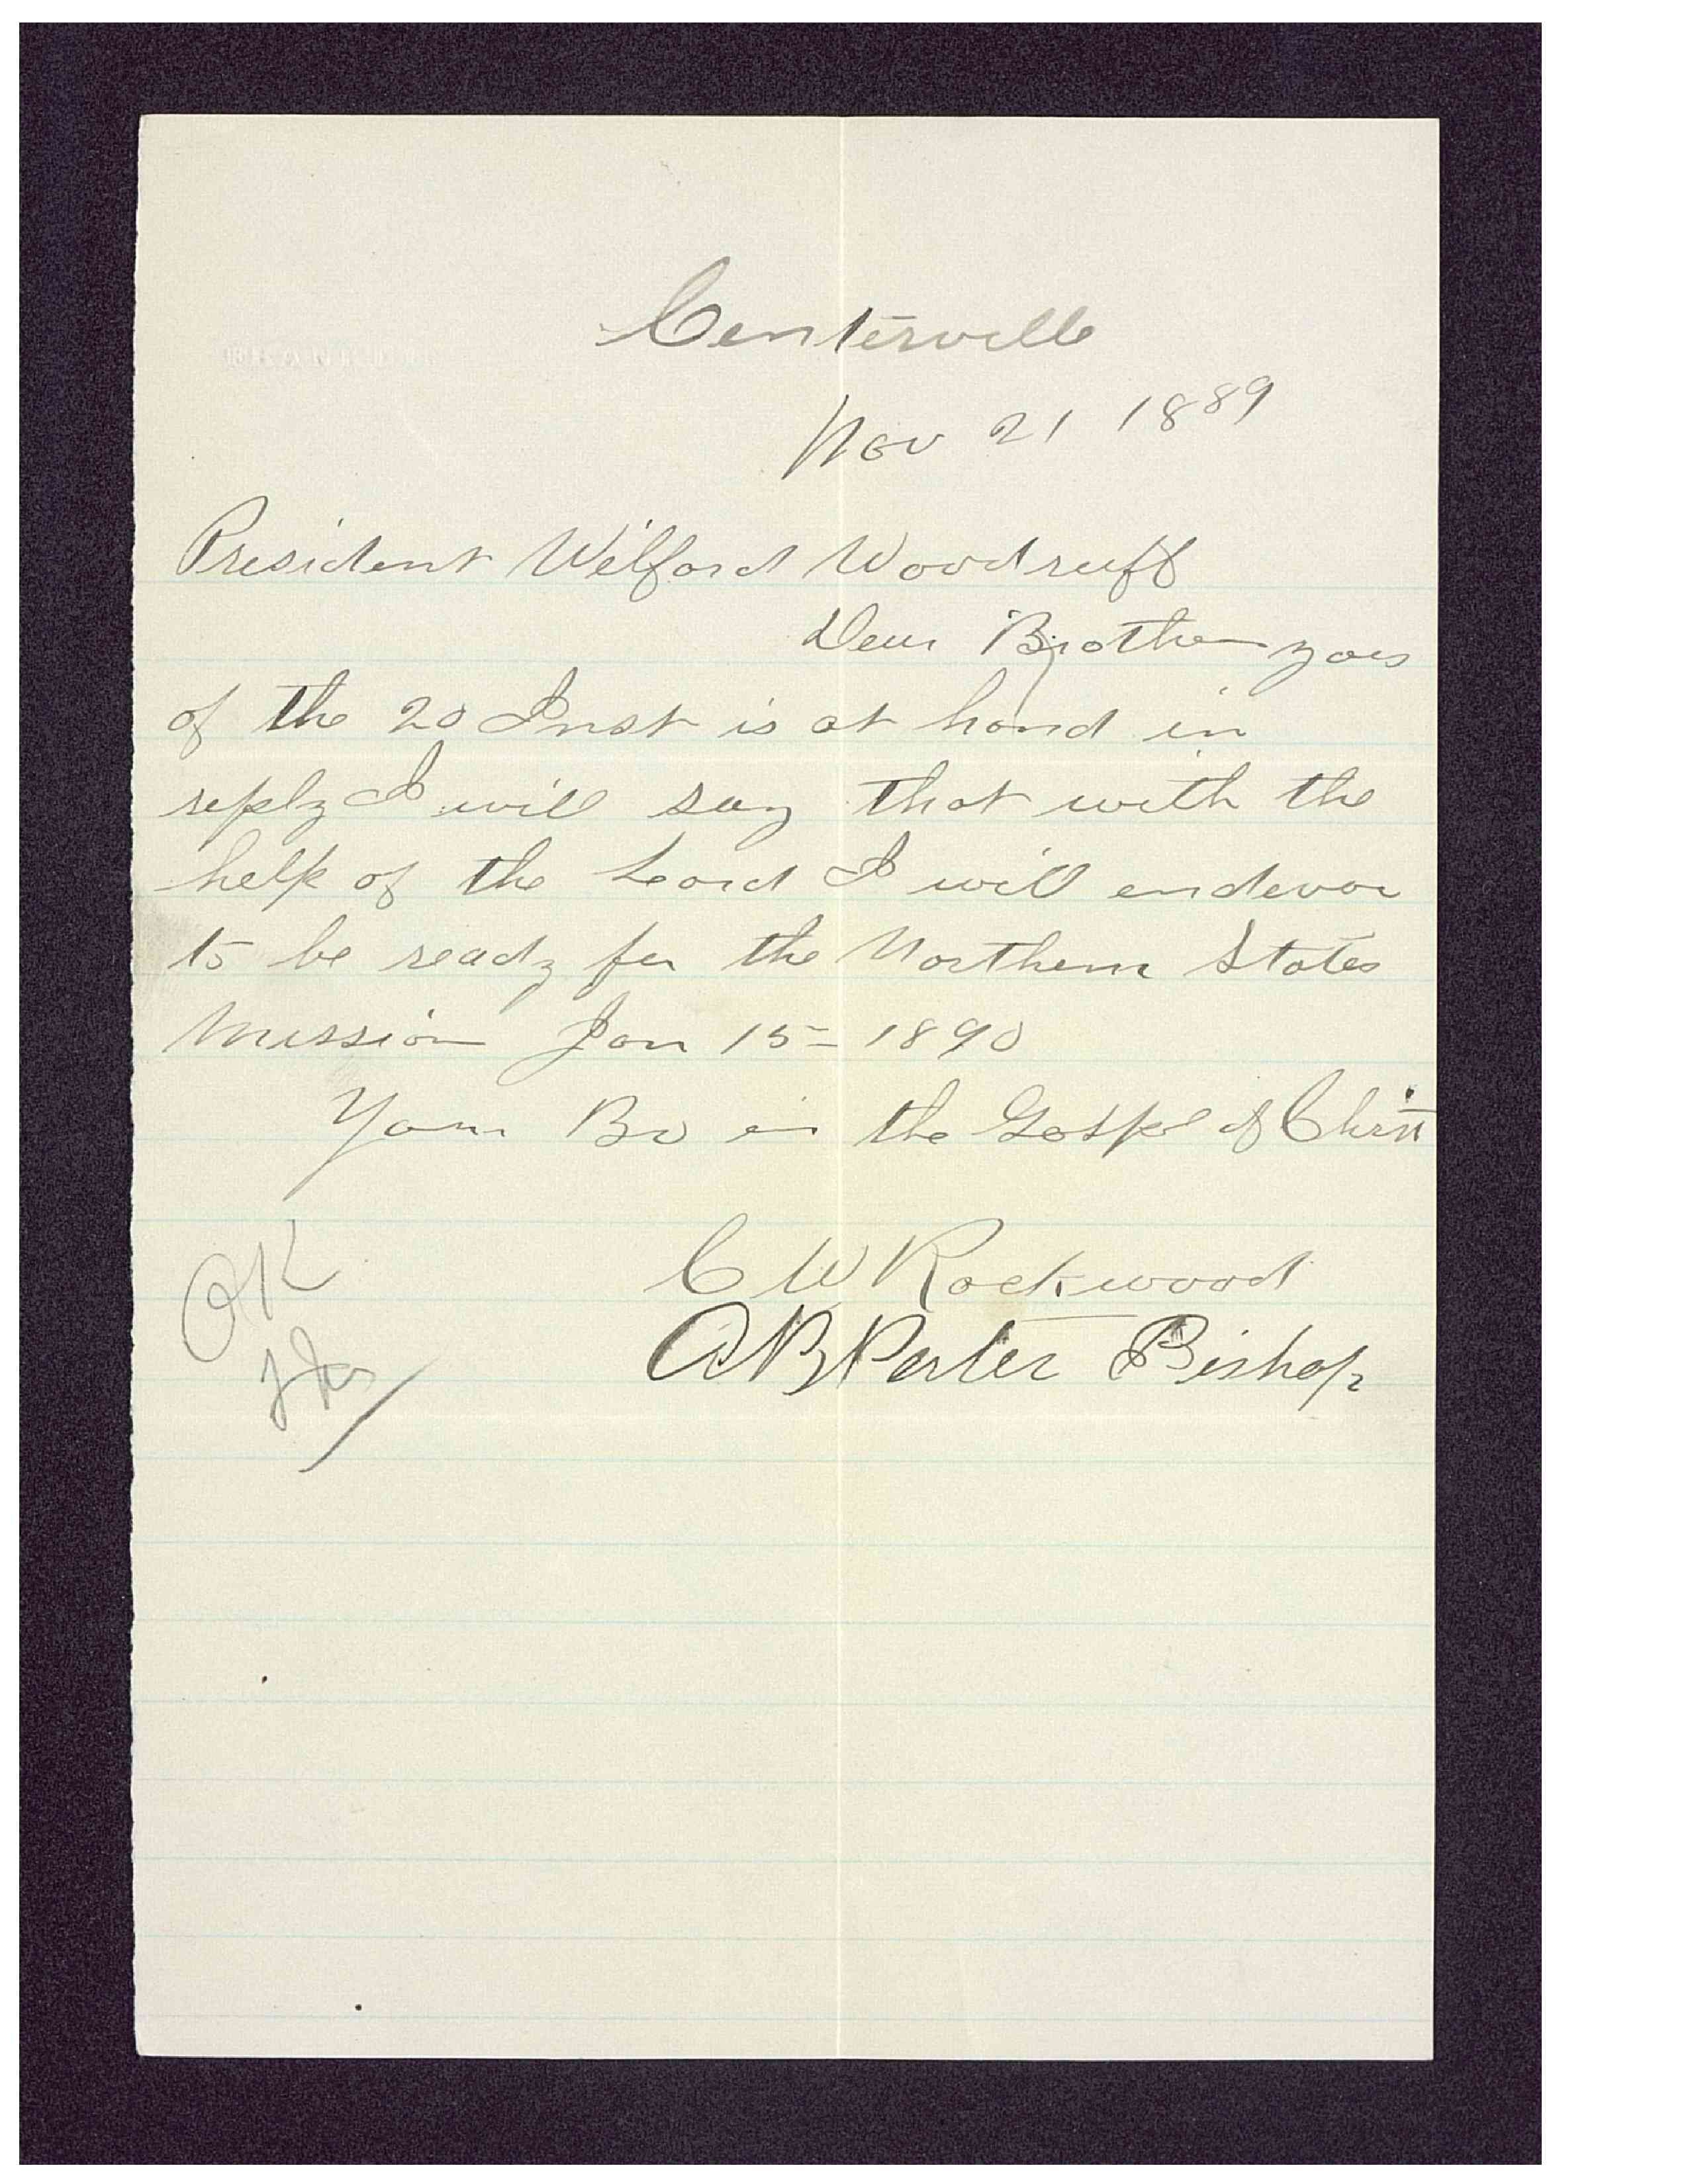 Centerville
Nov 21 1889
President Wilford Woodruff
Dear Brother yours
of the 20 Inst is at hand in
reply I will say that with the
help of the Lord I will endevor
to be ready for the Northern States
Mission Jan 15 = 1890
Your Bro in the Gospel of Christ
C W Rockwood
OK
A B Porter Bishop